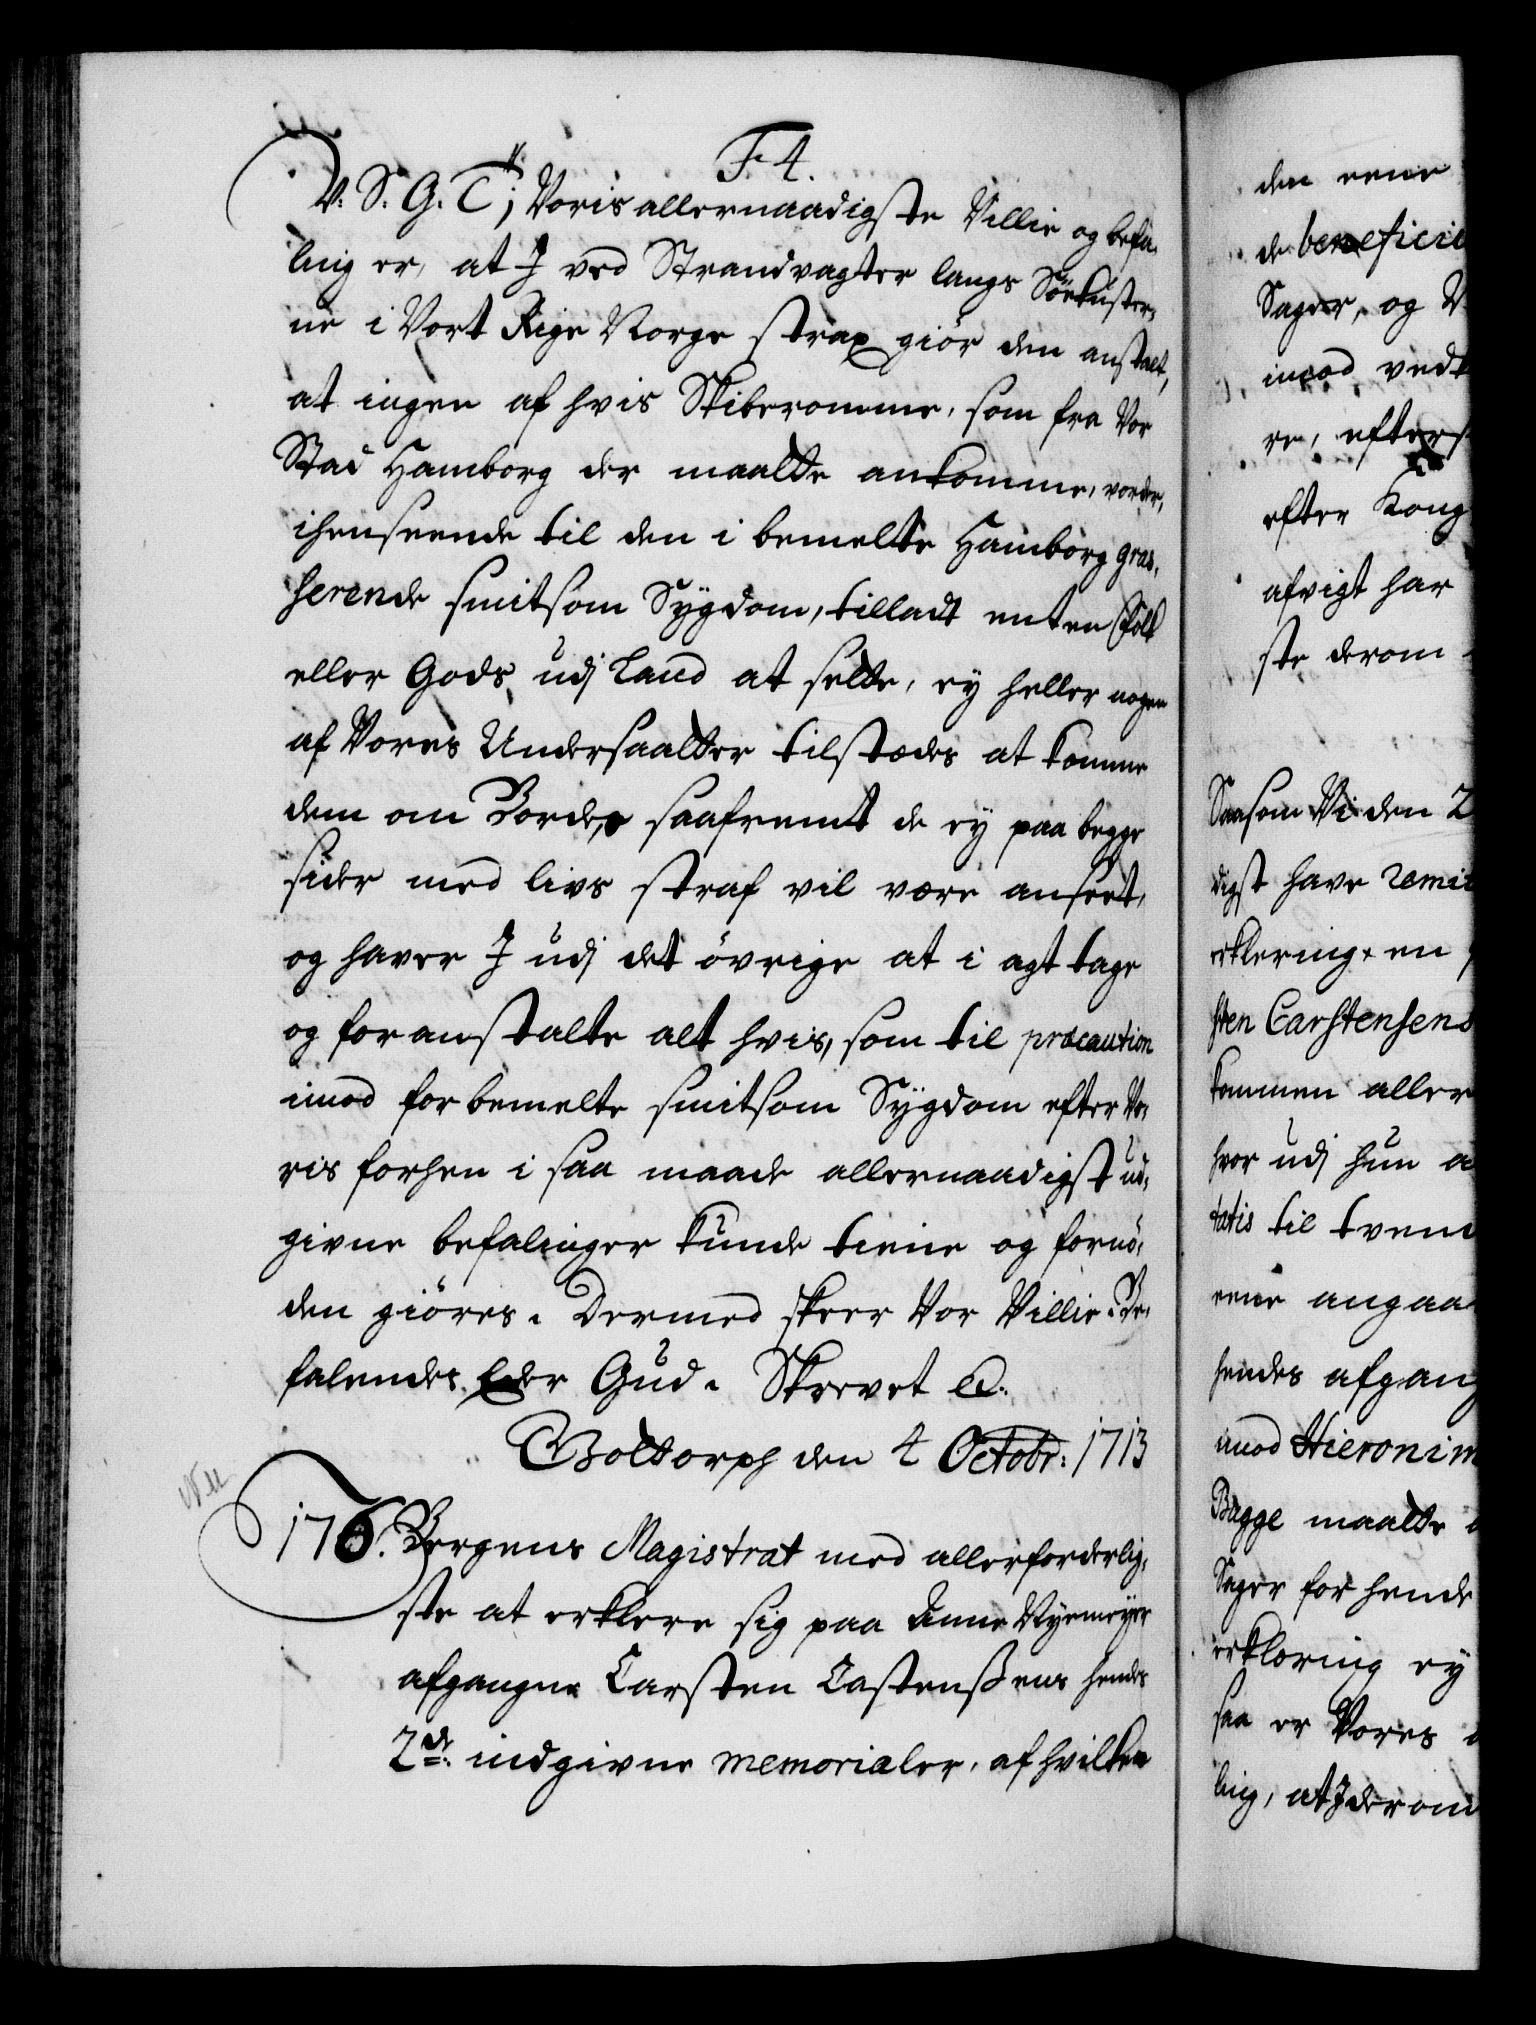 F. 4.
V. S. G. T; Voris allernaadigste Villie og befa-
ling er, at I ved Strandvagter langs Söekuster-
ne i Vort Rige Norge strax giör den anstalt,
at ingen af hvis Skiberomme, som fra Vor
Stad Hamborg der maatte ankomme, vorder,
ihenseende til den i bemelte Hamborg gras-
serende smitsom Sygdom, tilladt enten Folk
eller Gods udj Land at sette, ey heller nogen
af Vores Undersaatter tilstædes at komme
dem om Borde, saafremt de ey paa begge
sider med livs straf vil være anseet,
og haver I udj det övrige at i agt tage
og foranstalte alt hvis, som til præcaution
imod forbemelte smitsom Sygdom efter Vo-
ris forhen i saa maade allernaadigst ud-
givne befalinger kunde tiene og fornö-
den giöres. Dermed skeer Vor Villie. Be-
falendes Eder Gud. Skrevet
Gottorph den 4 Octobr: 1713
176. Bergens Magistrat med allerforderlig-
ste at erklere sig paa Anne Nyemeyer
afgangne Carsten Castenssens hendes
2de indgivne memorialer, af hvilken
den eene
de beneficie
Sager, og V
imod vedk
re, efters
efter Kong
afvigt har
ste derom
Saasom Vi den 2
digst have remit
erklering en
sten Carstensens
kommen aller
hvor udj hun a
tatis til tvend
eene angaa
hendes afgang
imod Hieronim
Bagge maatte
Sager for hende
erklæring ey
saa er Vores a
ling, at I derom